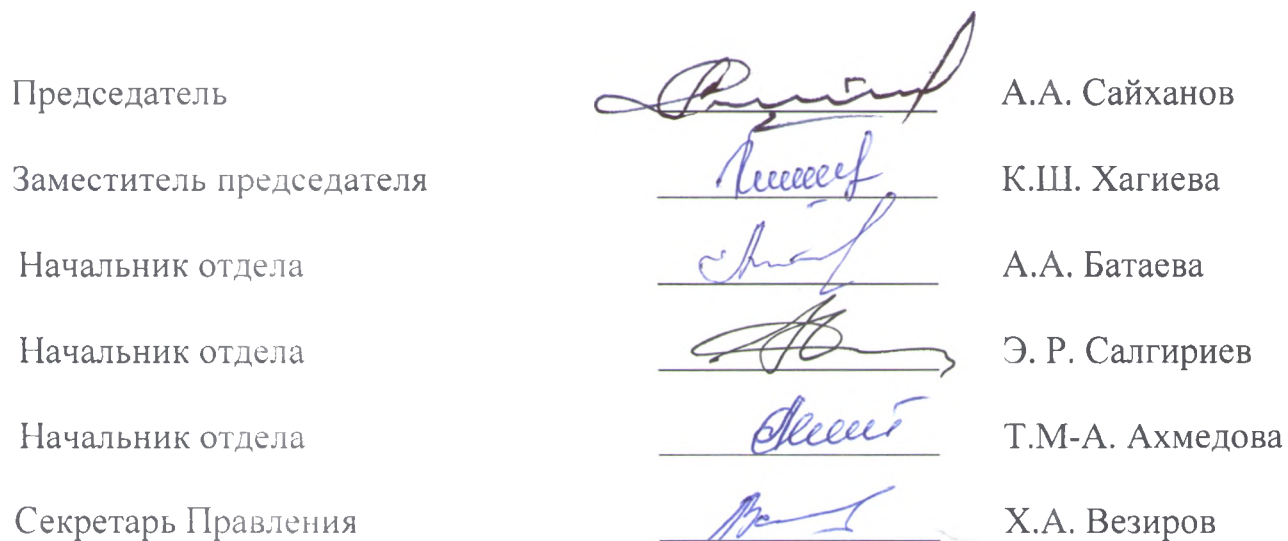 Председатель А.А. Сайханов
Заместитель председателя К.Ш. Хагиева
Начальник отдела А.А. Батаева
Начальник отдела Э. Р. Салгириев
Начальник отдела Т.М-А. Ахмедова
Секретарь Правления Х.А. Везиров